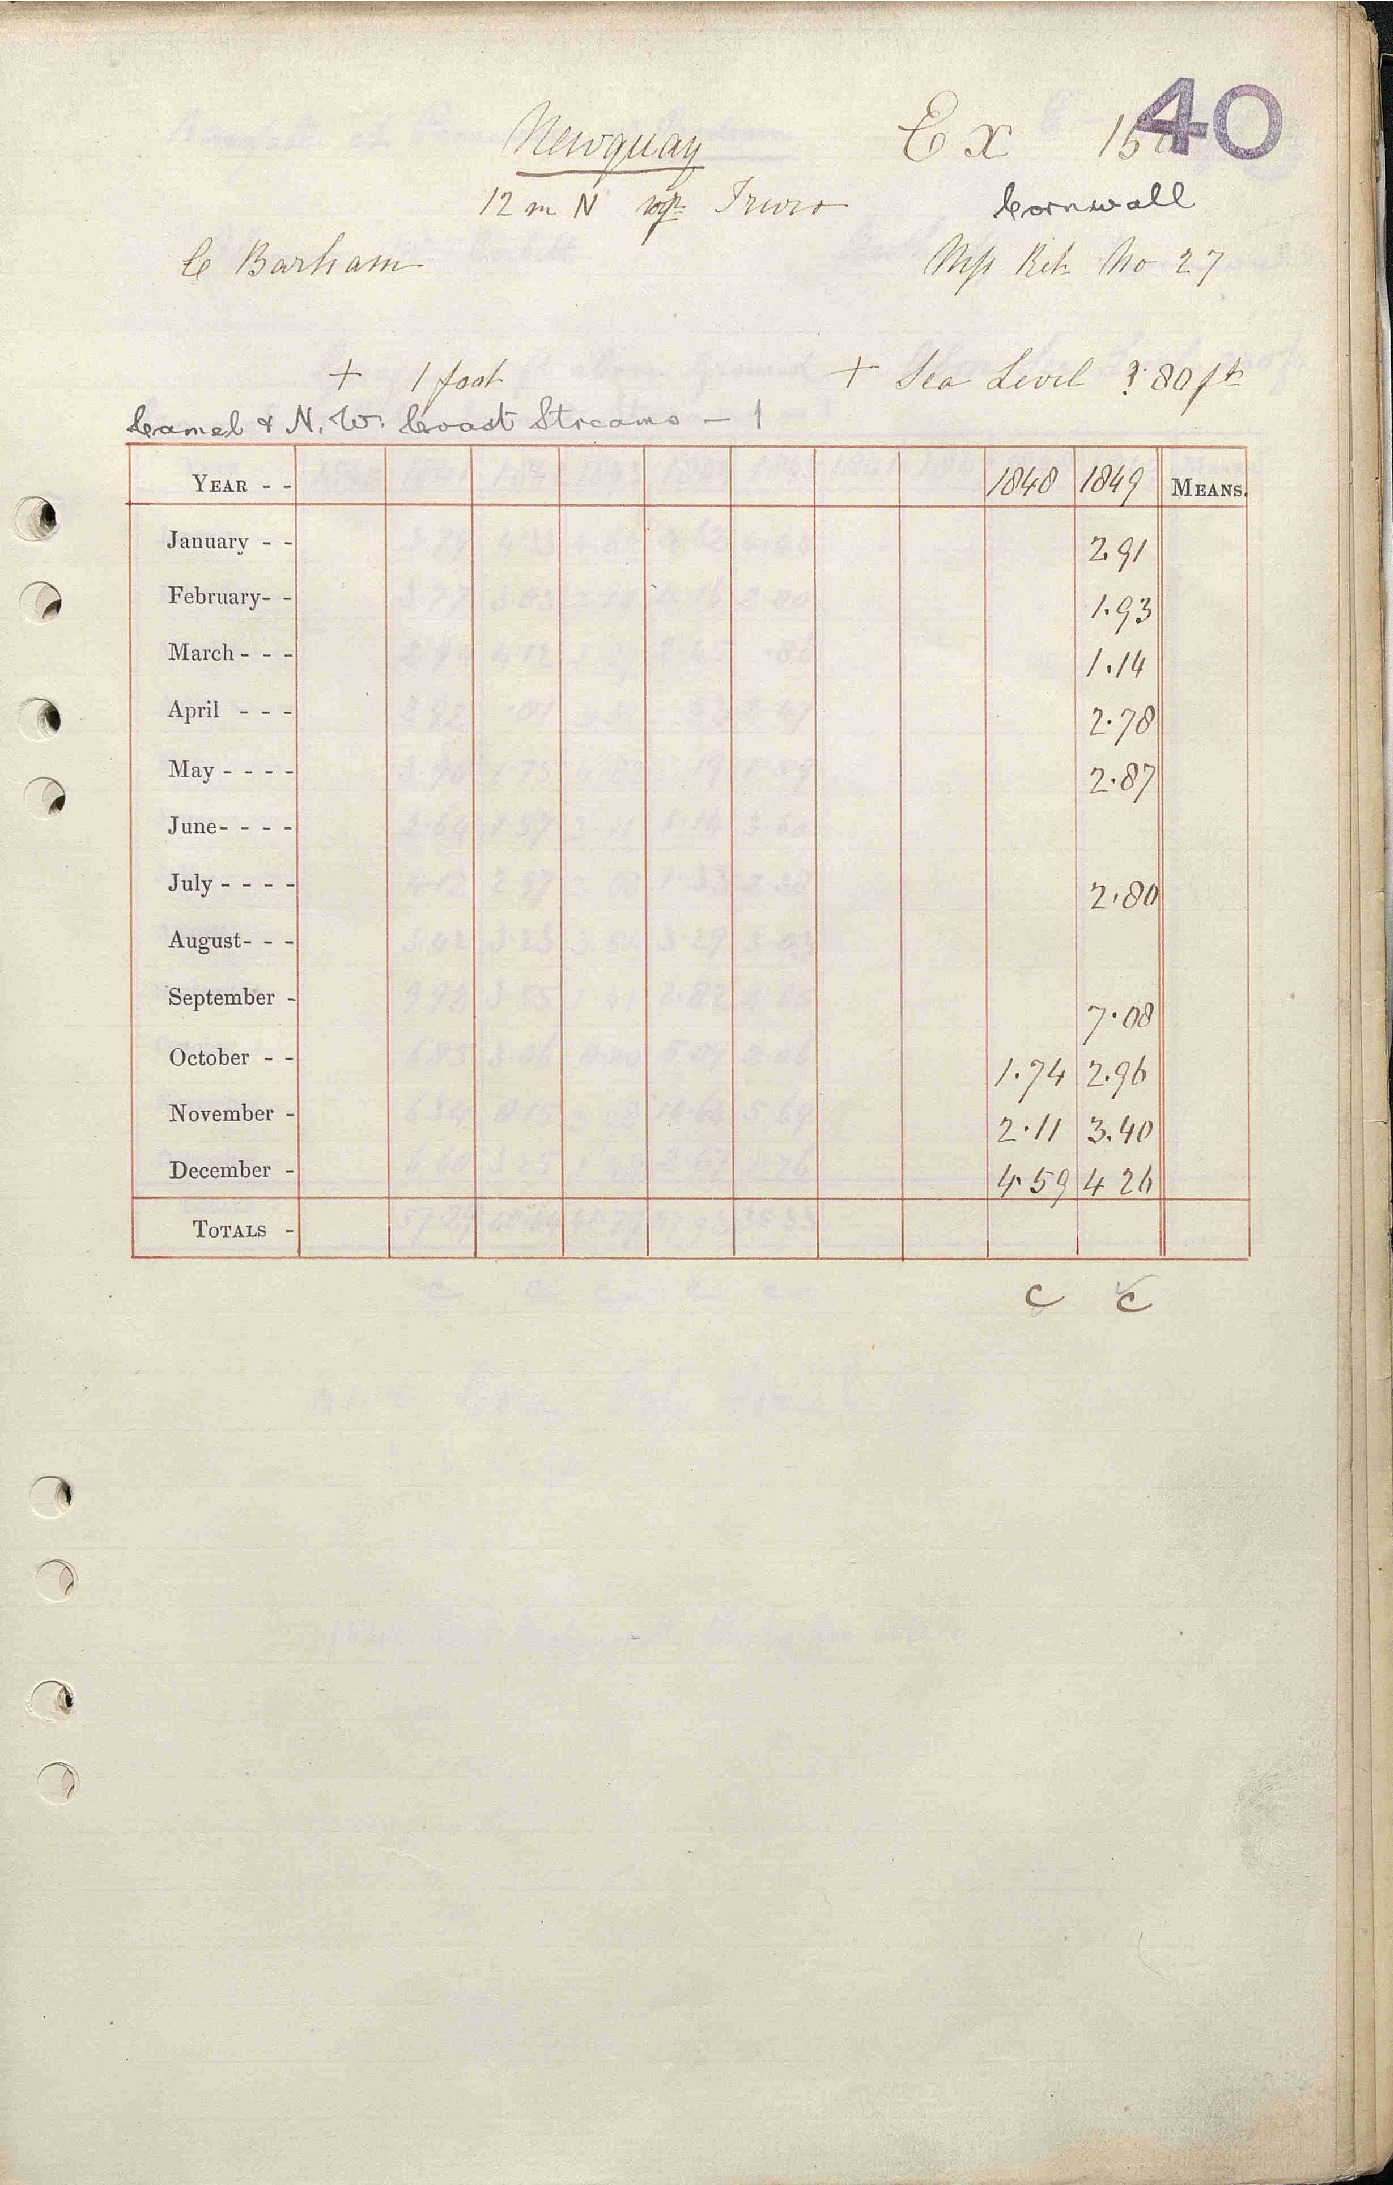 40
Newquay Ex
12 m N of Truro Cornwall
C Barham Mss Ret No 27
+ 1 foot + Sea Level ? 80 ft
Camel & N. W. Coast Streams - 1
YEAR - - 1848 1849 MEANS.
January - - 2.91
February- - 1.93
March - - - 1.14
April - - - 2.78
May - - - - 2.87
June- - - -
July - - - - 2.80
August- - -
September - 7.08
October - - 1.74 2.96
November - 2.11 3.40
December - 4.59 4 26
TOTALS -
C C